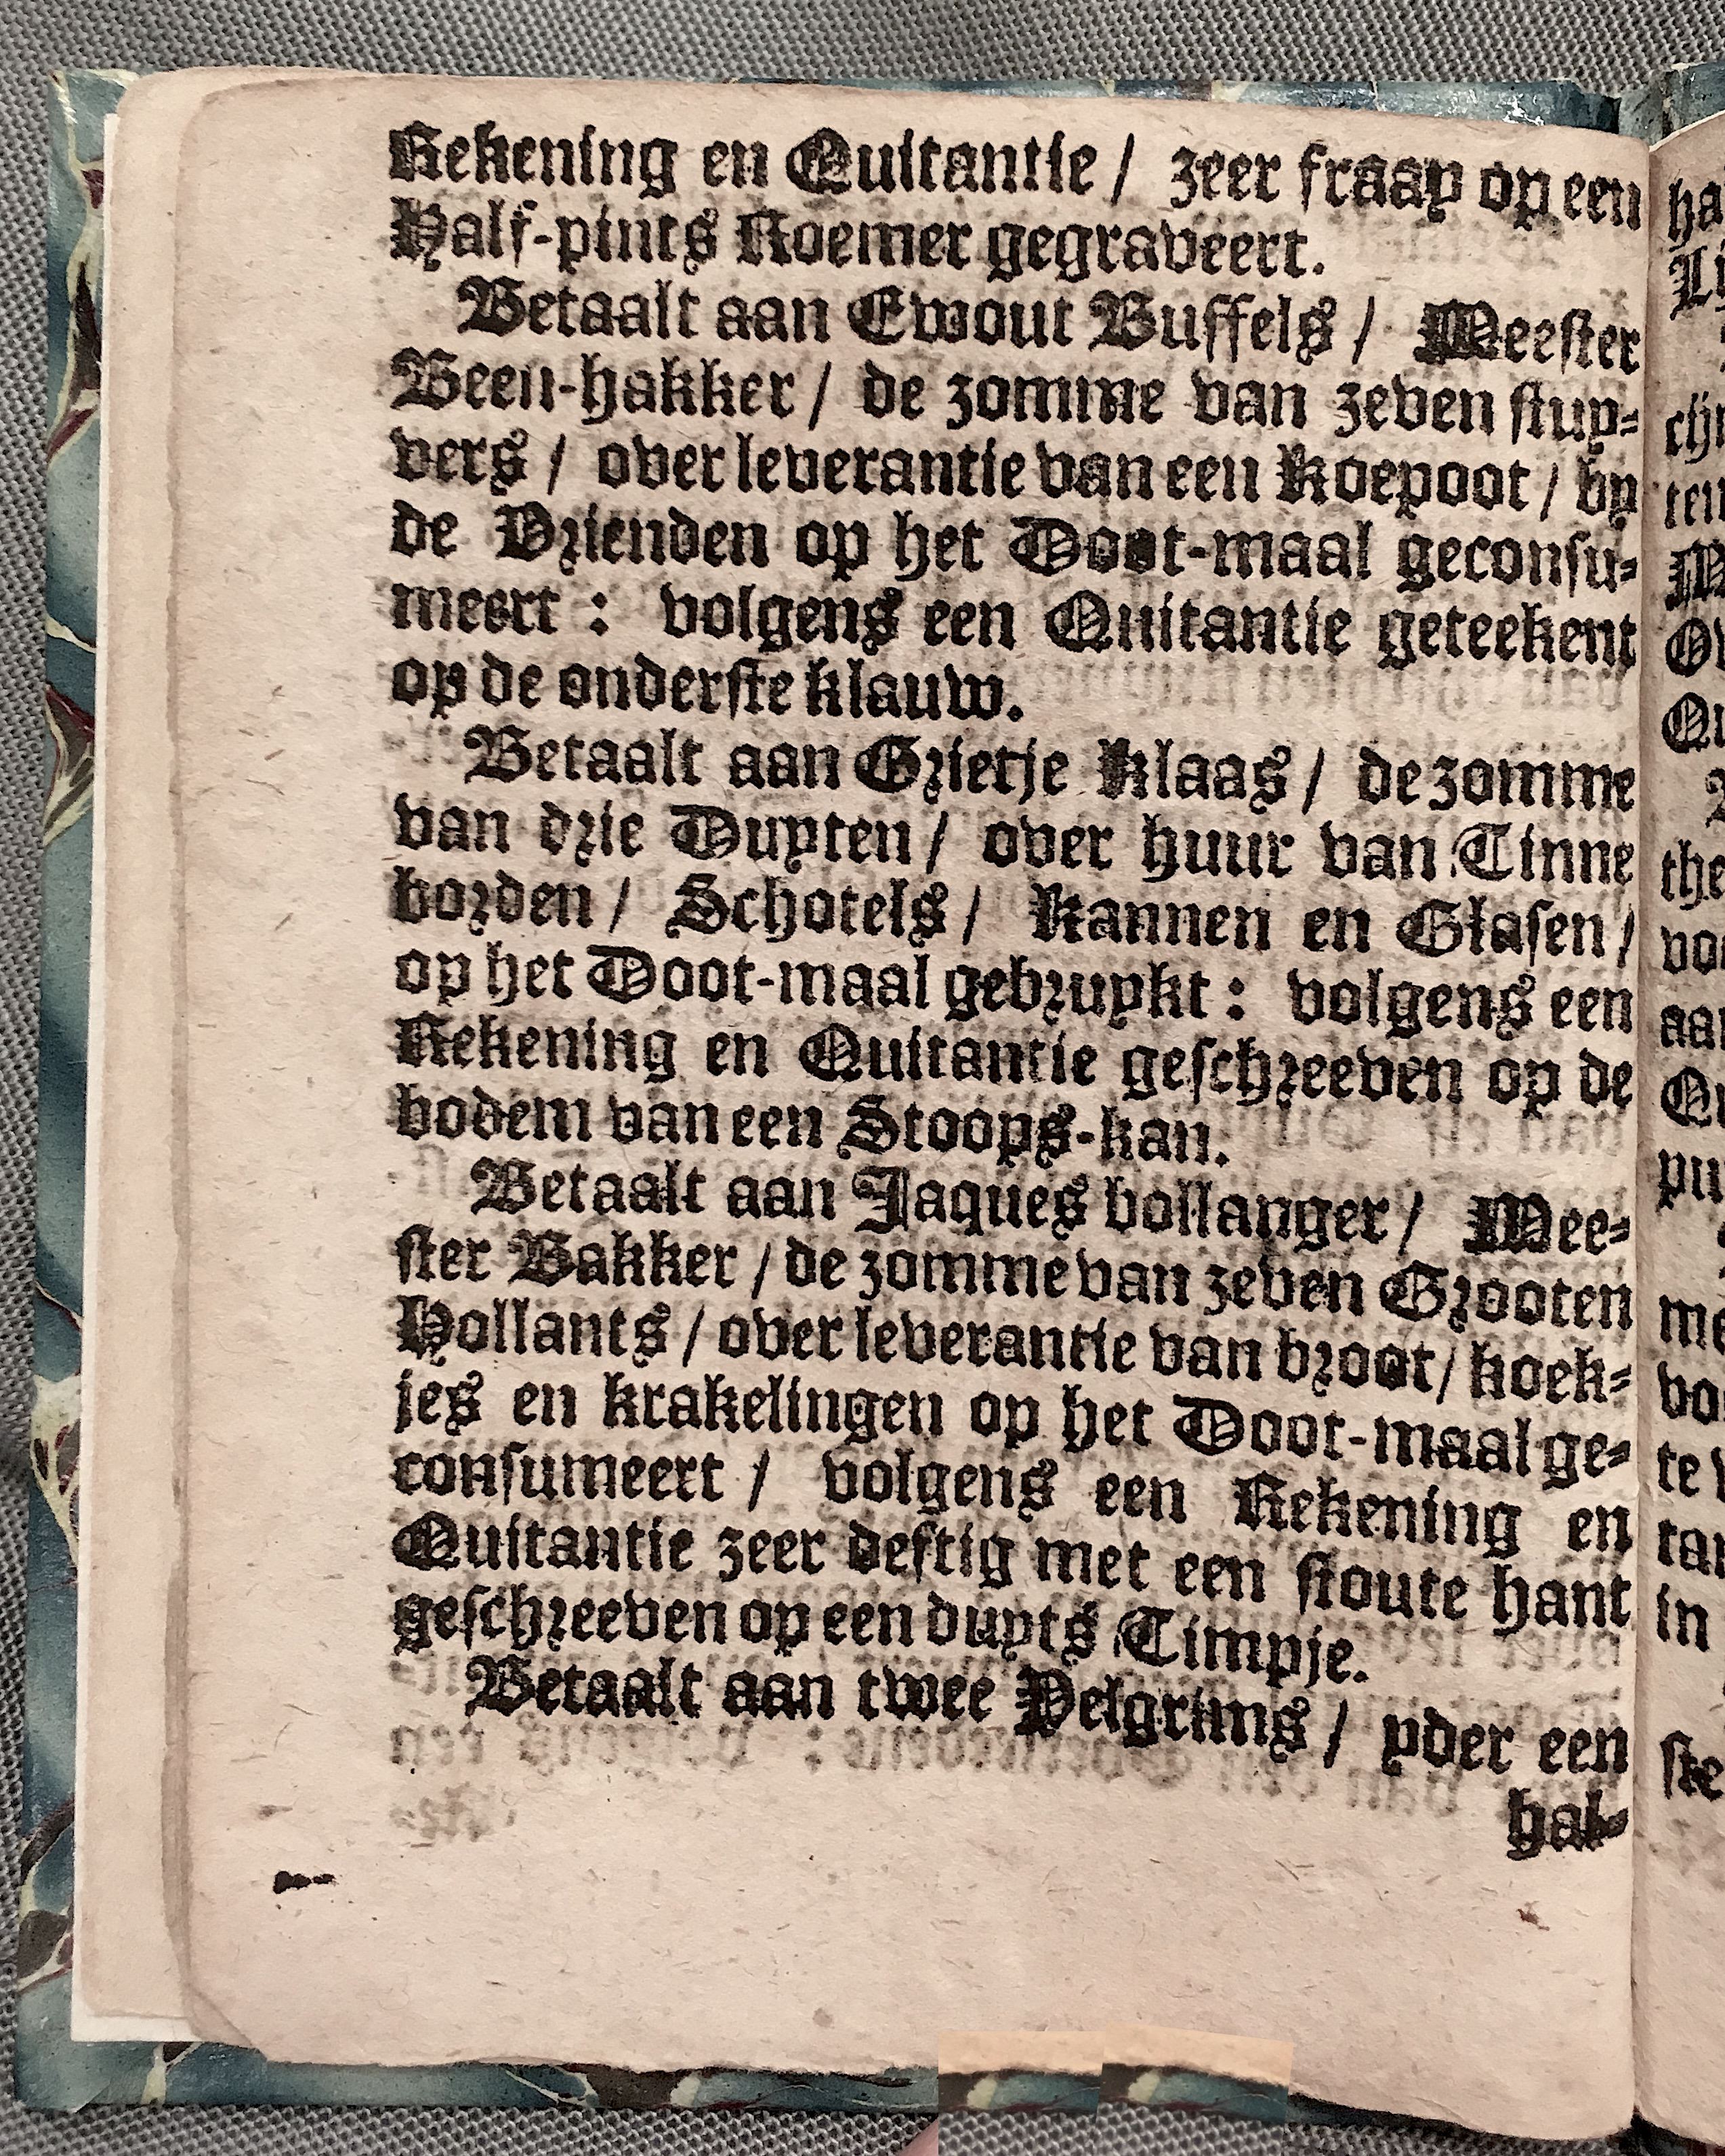 Rekening en Quitantie / zeer fraay op een
Half-pints Roemer gegraveert.
Betaalt aan Ewout Buffels / Meester
Been-hakker / de zomme van zeven stuy-
vers / over leverantie van een Koepoot / by
de Vrienden op het Doot-maal geconsu-
meert : volgens een Quitantie geteekent
op de onderste klauw.
Betaalt aan Grietje Klaas / de zomme
van drie Duyten / over huur van Tinne
borden / Schotels / Kannen en Glasen /
op het Doot-maal gebruykt : volgens een
Rekening en Quitantie geschreeven op de
bodem van een Stoops-kan.
Betaalt aan Jaques bollanger / Mee-
ster Bakker / de zomme van zeven Grooten
Hollants / over leverantie van broot / koek-
jes en krakelingen op het Doot-maal ge-
consumeert / volgens een Rekening en
Quitantie zeer deftig met een stoute hant
geschreeven op een duyts Timpje.
Betaalt aan twee Pelgrims / yder een
hal-
ha
Li
cijn
ten
M
Ov
Qu
the
voo
aan
Qu
pu
me
vo
te
tan
in
ste